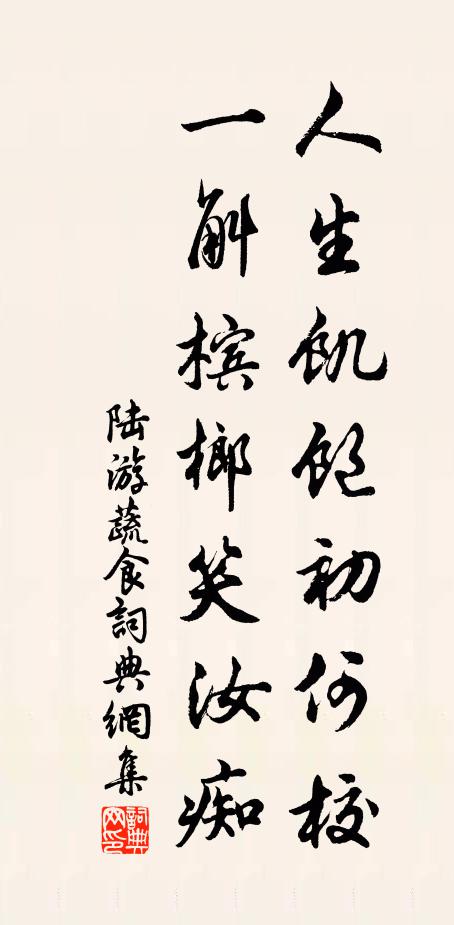 人生飢飽初何校
一斛槟榔笑汝痴
陆游蔬食詞典網集
詞典網印